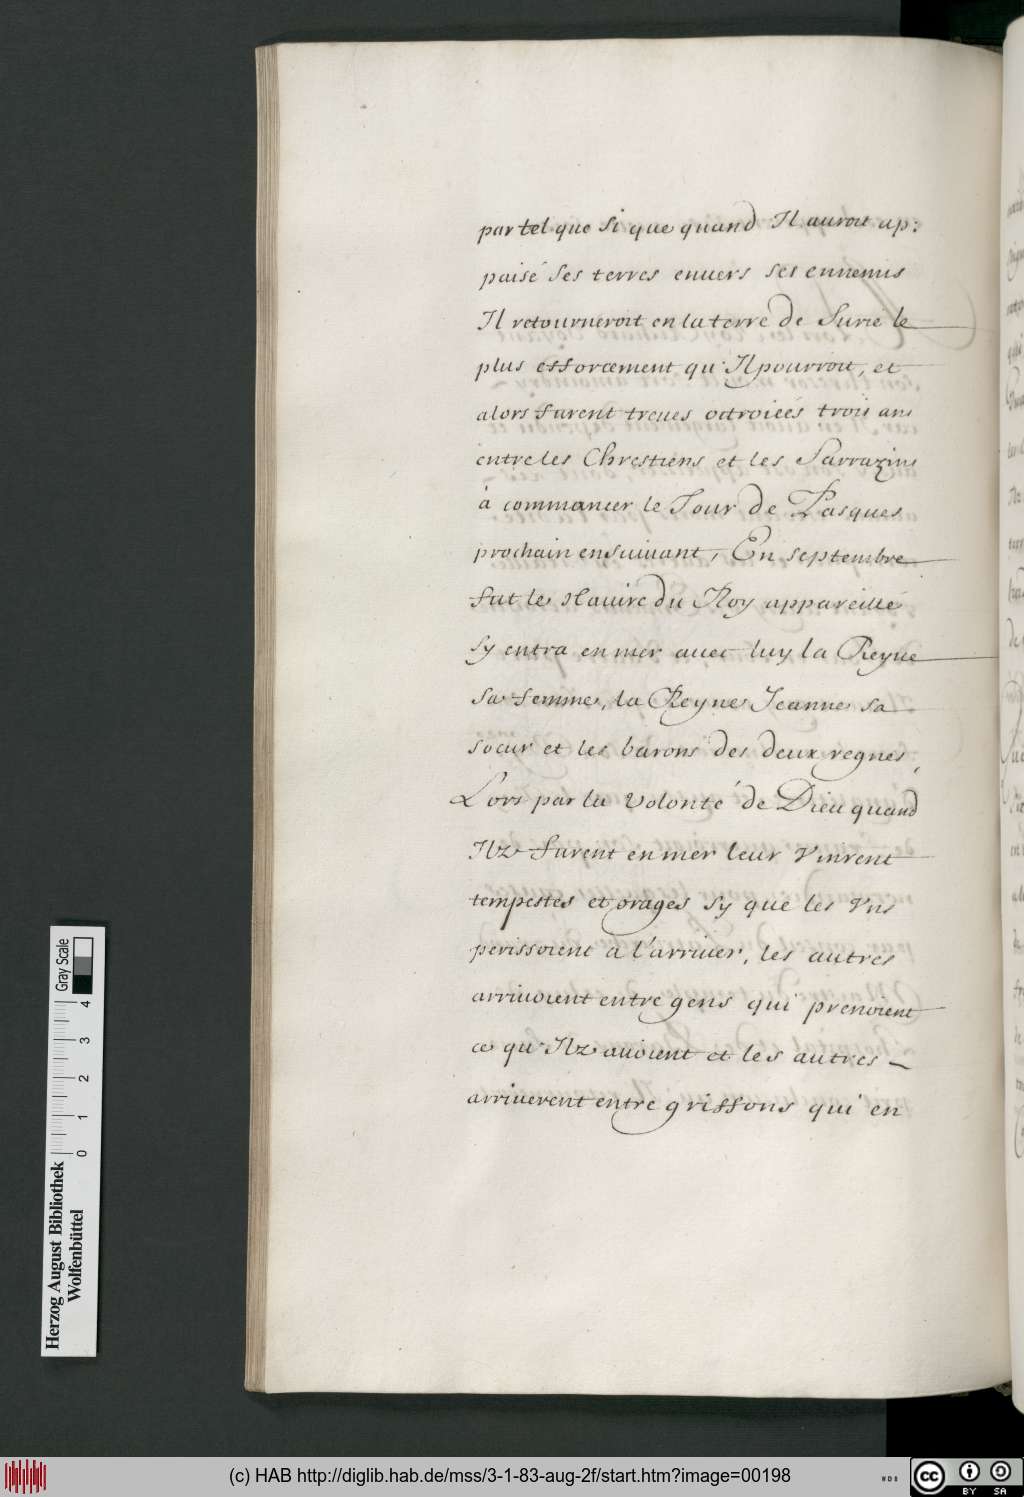 par tel que si que quand Il auroit ap:
paisé ses terres envers ses ennemis
Il retourneroit en la terre de Surie le
plus efforcement qu'Il pourroit, et
alors furent treues octroieés trois ans
entre les Chrestiens et les Sarrazins
à commancer le Jour de Pasques
prochain ensuivant, En septembre
fut le Navire du Roy appareillé
sy entra en mer avec luy la Reyne
sa femme, la Reyne Jeanne sa
soeur et les barons des deux regnes,
Lors par la volonté de Dieu quand
Ilz furent en mer leur vinrent
tempestes et orages sy que les vns
perissoient a l'arriuer, les autres
arriuoient entre gens qui prenoient
ce qu'Ilz auoient et les autres
arriuerent entre griffons qui en
Herzog August Bibliothek
Wolfenbüttel
0 1 2 3 4
Gray Scale
(c) HAB http://diglib.hab.de/mss/3-1-83-aug-2f/start.htm?image=00198
WDB
cc BY SA